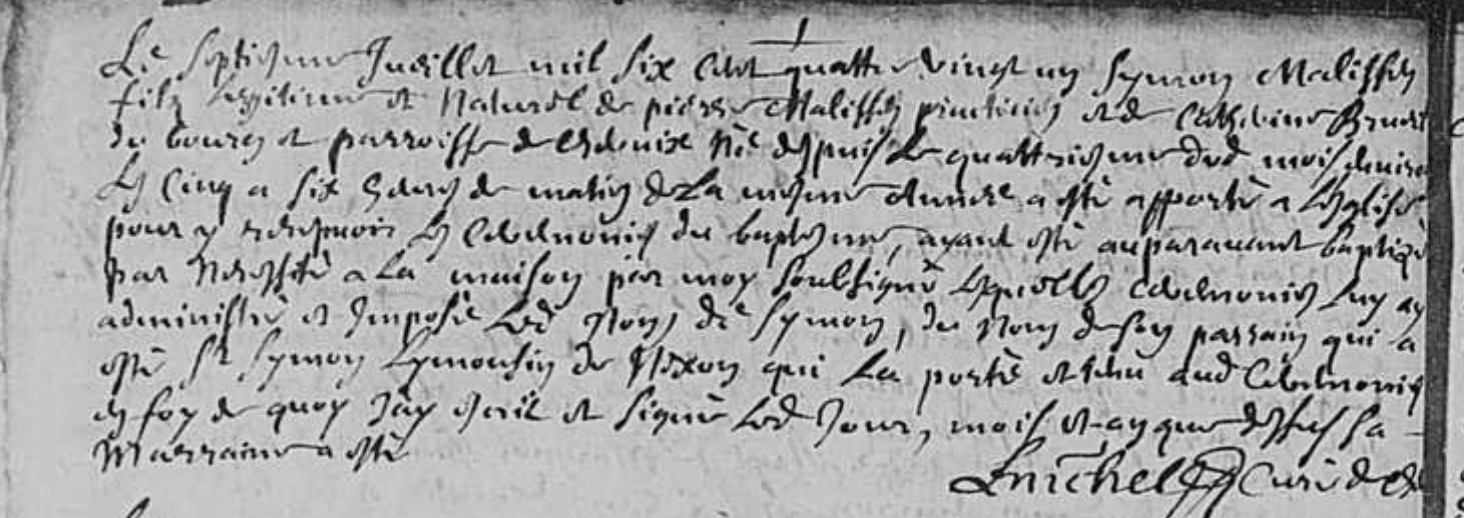 Le septiesme Juillet mil six cent quattre vingt un Symon Malissen
filz legitime et naturel de pierre Malissen praticien et de Catherine
du bourg et parroisse de né despuis le quattriesme dud mois
les cinq a six heures de matin de la mesme année a esté apporté a leglise
pour y recepvoir les ceremonies du baptesme, ayant esté auparavant baptizé
par necessité a la maison par moy soubsigné lesquelles ceremonies luy ay
administré et imposé led nom de Symon, du nom de son parrain qui a
esté Sr Symon Lymousin de Nexon qui la porté et tenu aud ceremonies
en foy de quoy jay escrit et signé led jour, mois et an que dessus sa
Marraine a esté
Michel curé de